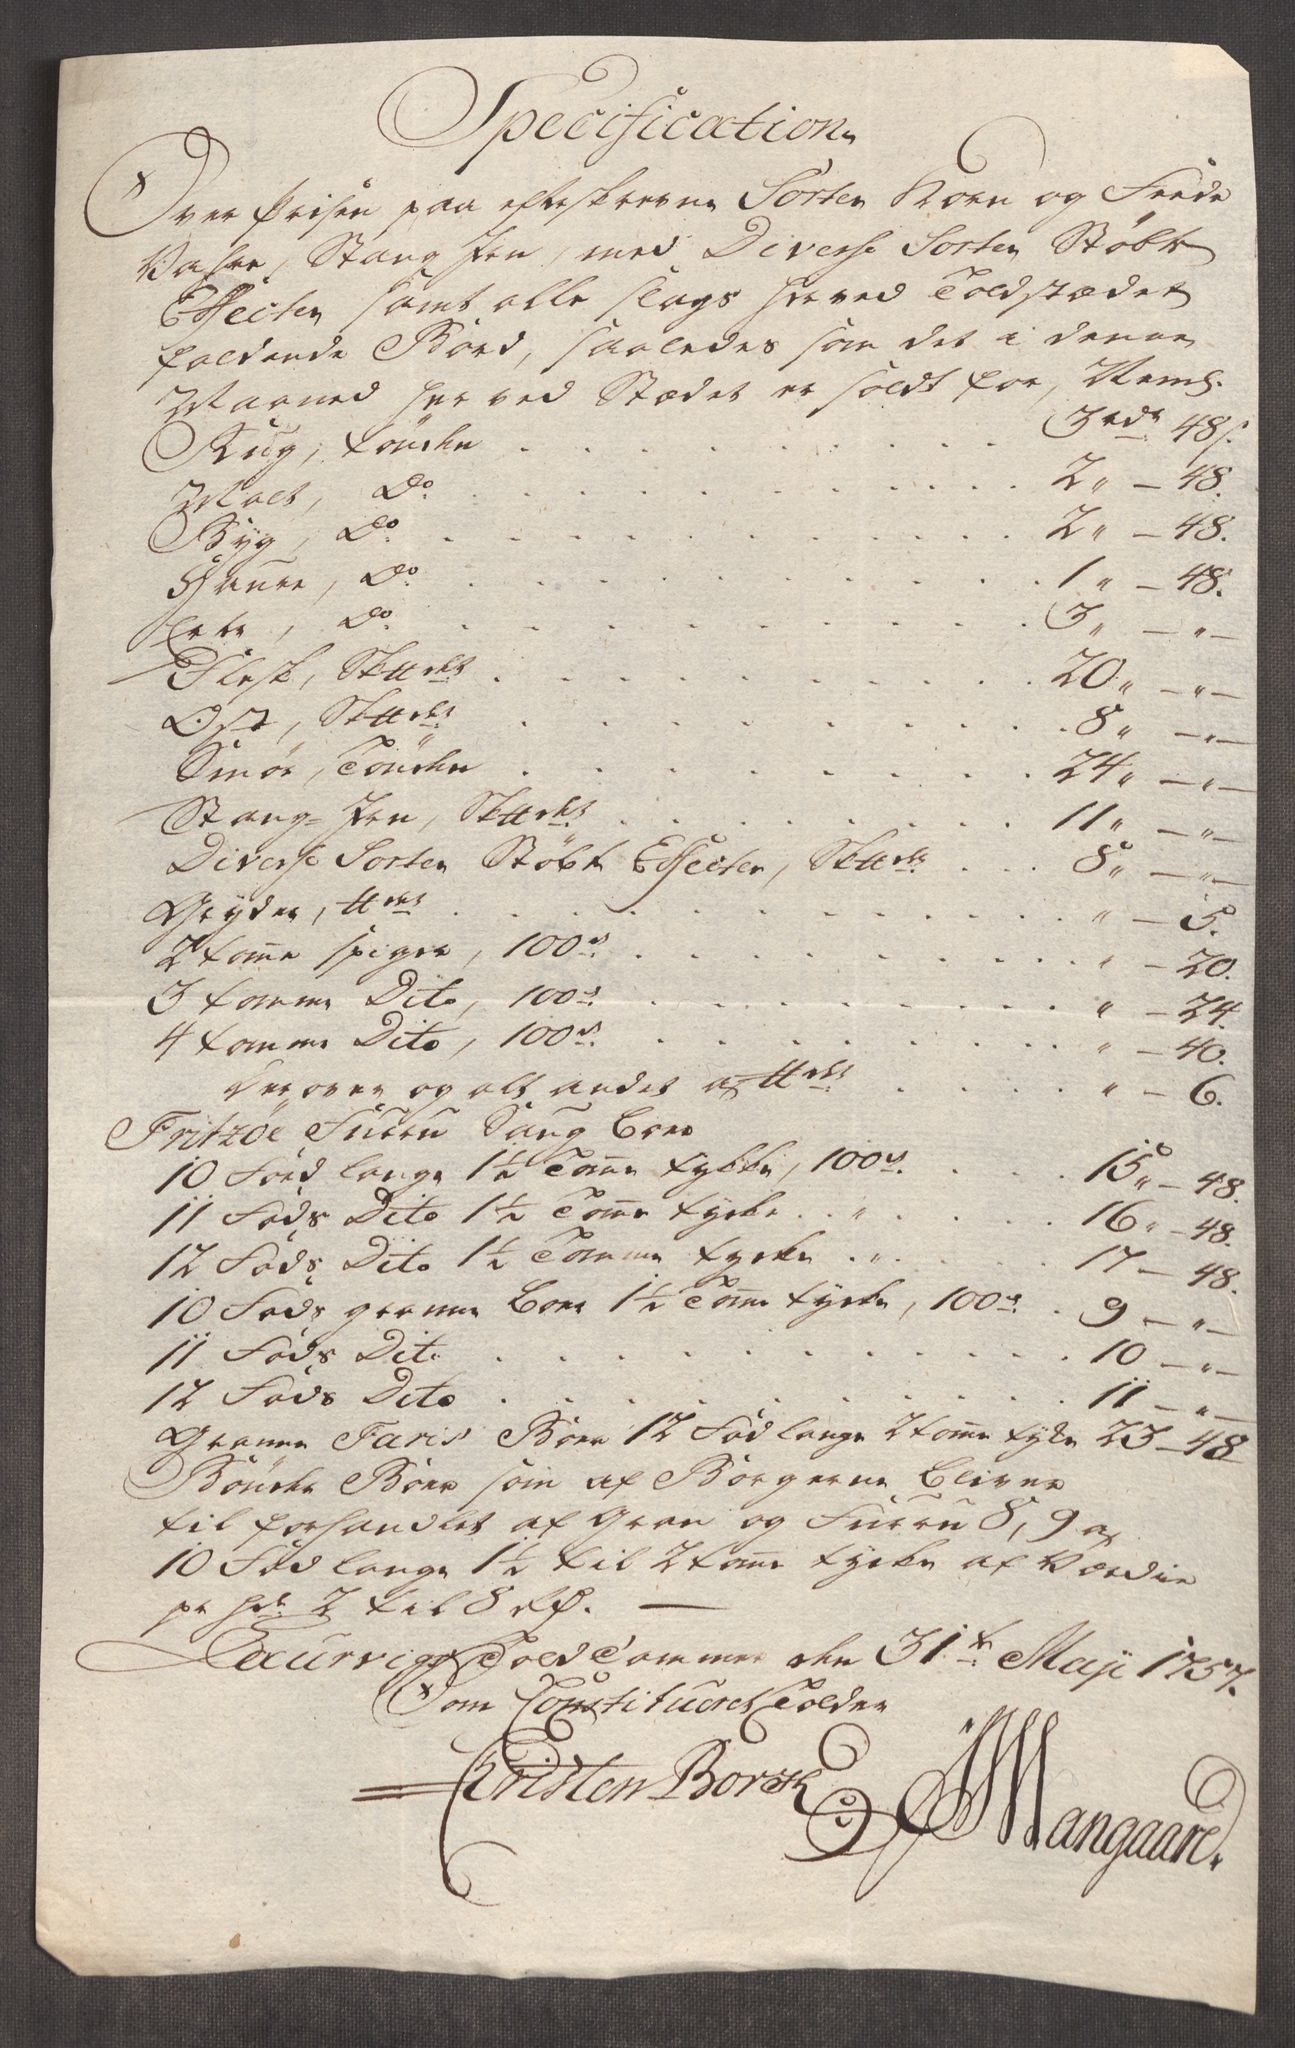 Specification
Over Prisen paa efterskrevne Sorter Korn og Feede
Vahre, Stang Jern, med Diverse Sorter Støbte
Effecter samt alle slags herved Toldstædet
faldende Bord, saaledes som det i denne
Maaned her ved Stædet er soldt for, Neml.
Rug, tönden . . . 3 rdr 48 s.
Malt, Do. . . . 2 „ — 48.
Byg, Do. . . . 2 „ — 48.
Haure, Do. . . . 1 „ — 48.
Erter, Do. . . . 3 „ — „ —
Flesk, Sk℔det . . . 20 „ — „ —
Ost, Sk℔det . . . 8 „ — „ —
Smör, Tönden . . . 24 „ — „ —
Stang-Jern, Sk℔det . . . 11 „ — „ —
Diverse Sorter Støbte Effecter, Sk℔det . . . 8 „ — „ —
Gryder, ℔det . . . „ — 5.
2 tomme spiger, 100de . . . „ — 20.
3 tomme Dito, 100de . . . „ — 24.
4 tomme Dito, 100de . . . „ — 40.
Derover og alt andet a ℔det . . . „ — 6.
Fritzöe Furru Saug Bord
10 Fod lange 1½ Tomme tykke, 100de . . . 15 „ — 48.
11 Fods Dito 1½ Tomme tycke . . „ . . . 16 „ — 48.
12 Fods Dito 1½ Tomme tycke . „ . . . 17 — 48.
10 Fods granne Bord 1½ Tomme tycke, 100de . 9 — „ —
11 Fods Dito . . . 10 — „ —
12 Fods Dito . . . 11 — „ —
Granne Faris Bord 12 Fod lange 2 tomme tycke 23 — 48
Bönder Bord som af Borgerne bliver
til forhandlet af Gran og Furru 8, 9 a
10 Fod lange 1½ til 2 tomme tycke af Værdie
pr 2 til 8 rd. —
Laurvigs Told Cammer den 31te Maji 1757.
Som Constitueret Tolder
Cristen Borch Mangaard.